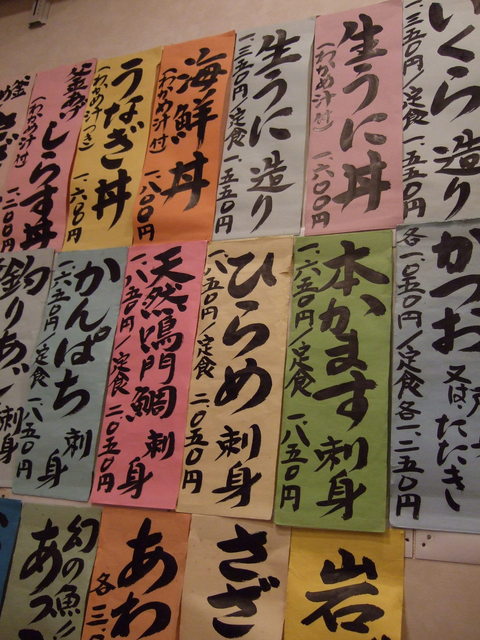 いくら造り
一、三五〇円/定食 一、五五〇円
生うに丼
(わかめ汁付)
一、六〇〇円
生うに造り
一、三五〇円/定食 一、五五〇円
海鮮丼
(わかめ汁付)
一、八〇〇円
うなぎ丼
(わかめ汁つき)
釜あげしらす丼
(わかめ汁付)
一、二〇〇円
かつお 又は、たたき
各一、〇五〇円/定食各一、二五〇円
本かます刺身
一、六五〇円/定食 一、八五〇円
ひらめ刺身
一、八五〇円/定食 二、〇五〇円
天然鳴門鯛刺身
一、八五〇円/定食 二、〇五〇円
かんぱち刺身
一、六五〇円/定食 一、八五〇円
釣りあじ刺身
岩
さざ
あわ
各 三、
幻の魚